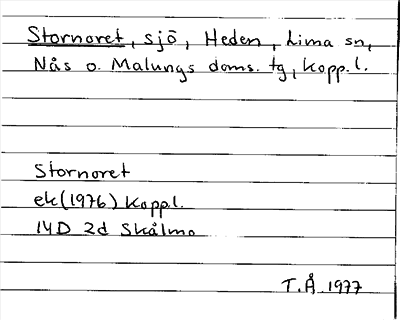 Stornoret, sjö, Heden, Lima sn,
Nås o. Malungs doms. tg, Kopp. l.
Stornoret
ek (1976) Kopp.l.
14D 2d Skålmo
T.Å. 1977